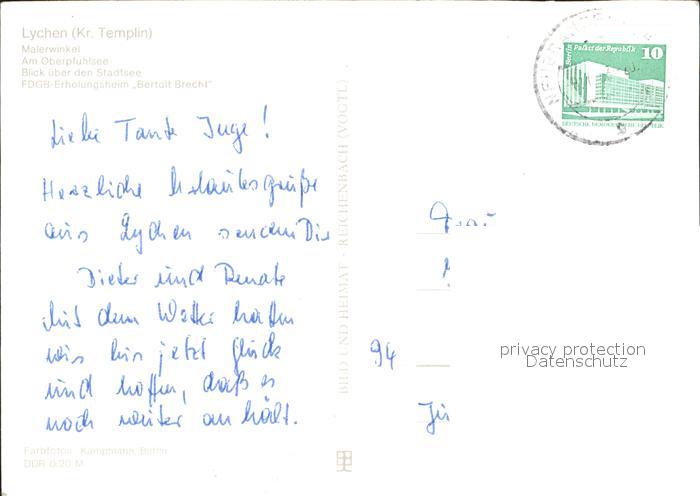 Lychen (Kr. Templin)
Malerwinkel
Am Oberpfuhlsee
Blick über den Stadtsee
FDGB-Erholungsheim „Bertolt Brecht"
Liebe Tante Inge!
Herzliche Urlaubsgrüße
aus Lychen senden Dir
Dieter und Renate
Mit dem Wetter hatten
wir bis jetzt Glück
und hoffen, daß es
noch weiter an hält.
Farbfotos: Kampmann, Berlin
DDR 0,20 M
BILD UND HEIMAT · REICHENBACH (VOGTL)
Berlin Palast der Republik
10
DEUTSCHE DEMOKRATISCHE REPUBLIK
Frau
94
privacy protection
Datenschutz